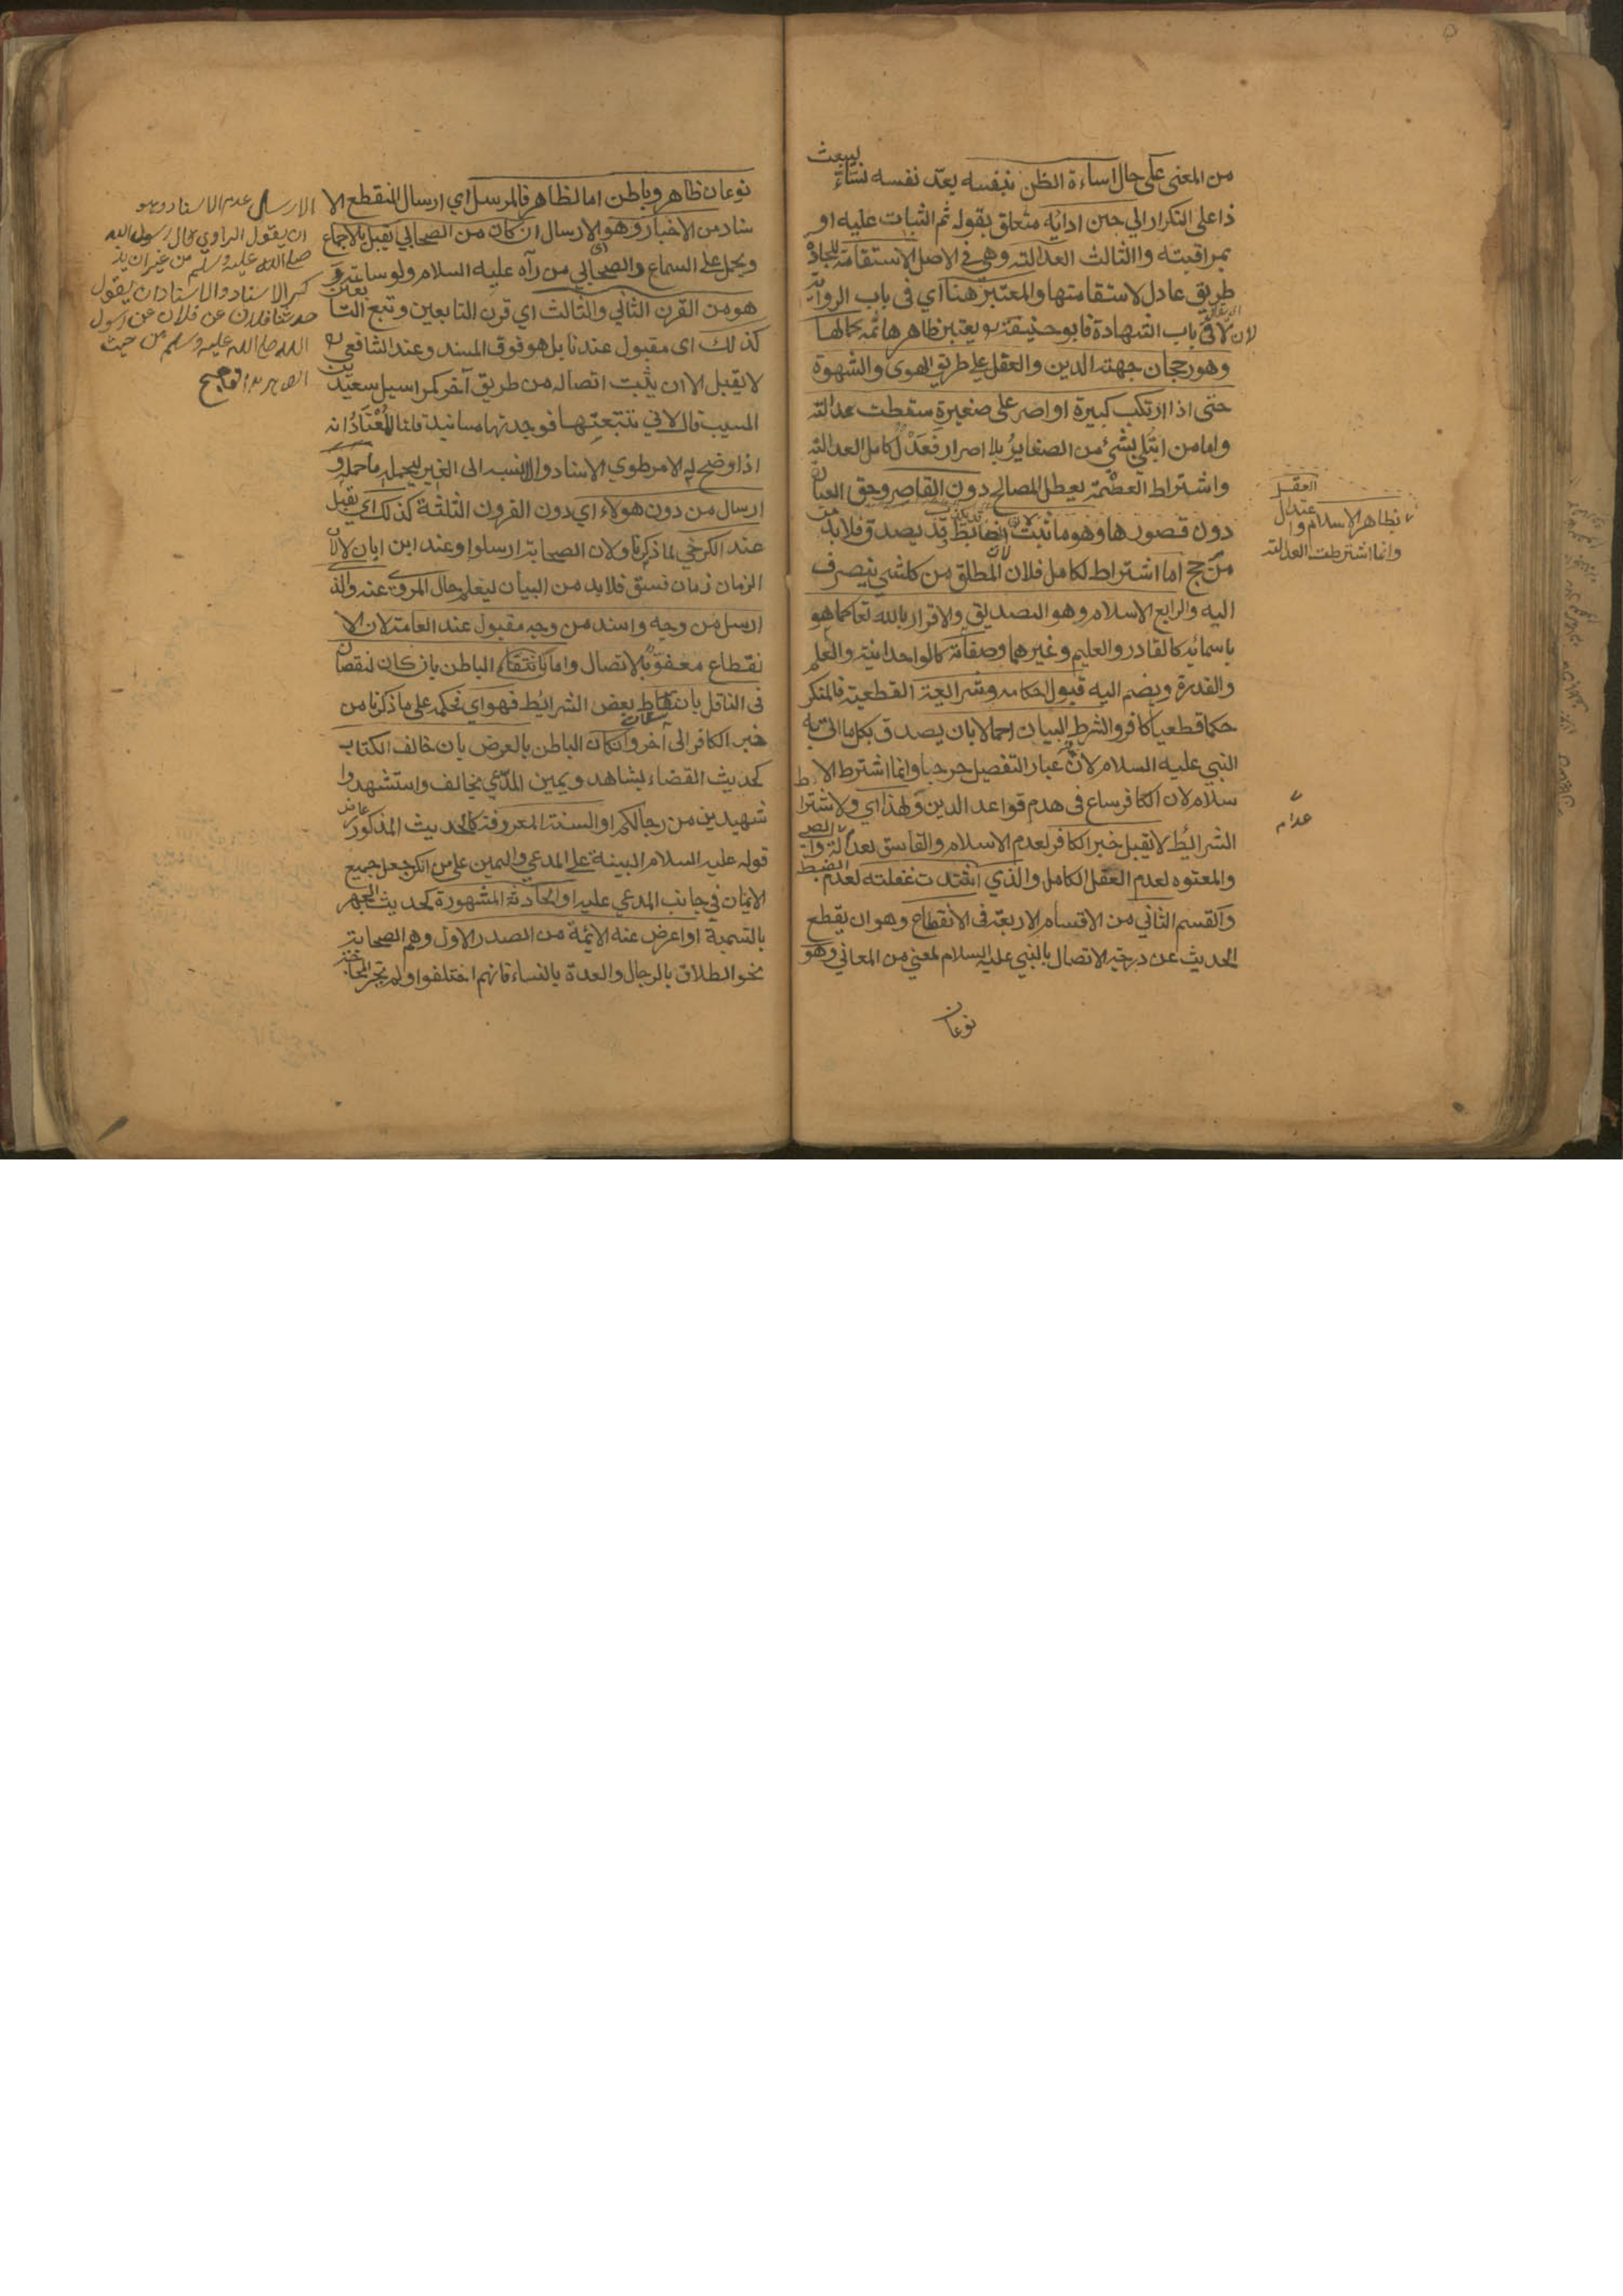 من المعنى على حال اساءة الظن بنفسه يعد نفسه نساء
ذا على التكرار الي حين ادائه متعلق بقوله ثم الثبات عليه او
بمراقبته والثالث العدالة وهي في الاصل الاستقامة للجادة
طريق عادل لاستقامتها والمعتبر هنا اي في باب الرواية
لا في باب الشهادة فابو حنيفة يعتبر ظاهرها ثمه كمالها
وهو رجحان جهة الدين والعقل على طريق الهوى والشهوة
حتى اذا ارتكب كبيرة او اصر على صغيرة سقطت عدالته
واما من ابتلي بشيء من الصغاير بلا اصرار فعدل كامل العدالة
واشتراط العصمة يعطل المصالح دون القاصر وحق العبا
دون قصورها وهو ما ثبت يصدق فلابد
من اما اشتراط لكامل فلان المطلق من كل شي ينصرف
اليه والرابع الاسلام وهو التصديق والاقرار بالله تعا كما هو
باسمائه كالقادر والعليم وغيرهما وصفاته كالواحدانية والعلم
والقدرة ويضم اليه قبول احكامه وشرايعة القطعية فالمنكر
حكما قطعيا كافر والشرط البيان اجمالا بان يصدق بكل ما اتى به
النبي عليه السلام لان في اعتبار التفصيل حرجا وانما اشترط الا
سلام لان الكافر ساع في هدم قواعد الدين ولهذا اي ولاشترا ط
الشرائط لا يقبل خبر الكافر لعدم الاسلام والفاسق لعدالة والصبي
والمعتوه لعدم العقل الكامل والذي اشتدت غفلته لعدم الضبط
والقسم الثاني من الاقسام الاربعة في الانقطاع وهو ان يقطع
الحديث عن درجة الاتصال بالنبي عليه السلام لمعني من المعاني وهو
نوعان
العقل
بظاهر الاسلام واعتدال
وانما اشترطت العدالة
عدام
نوعان ظاهر وباطن اما الظاهر فالمرسل اي ارسال المنقطع الا
سناد من الاخبار وهو الارسال ان كان من الصحابي يقبل بالاجماع
ويحمل على السماع والصحابي من رآه عليه السلام ولو ساعة و
هو من القرن الثاني والثالث اي قرن التابعين وتبع التا بعين
كذلك اى مقبول عندنا بل هو فوق المسند وعند الشافعي
لا يقبل الا ان يثبت اتصاله من طريق آخر كمراسيل سعيد بن
المسيب قال لاني تتبعتها فوجدتها مسانيد قلنا المعتاد انه
اذا وضح له الامر طوي الاسناد والا نسبه الى الغير ليحمله ما حمله و
ارسال من دون هولاء اي دون القرون الثلثة كذلك اي يقبل
عند الكرخي لما ذكرنا ولان الصحابة ارسلوا وعند ابن ابان لا لان
الزمان زمان فسق فلابد من البيان ليعلم حال المروي عنه والذ
ارسل من وجه واسند من وجه مقبول عند العامة لان الا
نقطاع معفو بالاتصال واما الباطن بان كان لنقصان
في الناقل بعض الشرائط فهو اي فحكمه على ما ذكرنا من
خبر الكافر الى آخره وان كان الباطن بالعرض بان خالف الكتاب
كحديث القضاء بشاهد ويمين المدعي يخالف واستشهدوا
شهيدين من رجالكم او السنة المعروفة كالحديث المذكور عارض
قوله عليه السلام البينة على المدعي واليمين على من انكر جعل جميع
الايمان في جانب المدعي عليه او الحادثة المشهورة كحديث الجهر
بالتسمية او اعرض عنه الائمة من الصدر الاول وهم الصحابة
نحو الطلاق بالرجال والعدة بالنساء فانهم اختلفوا ولم تجر المحاجة
الارسال عدم الاسناد وهو
ان يقول الراوي قال رسول الله
صلى الله عليه وسلم من غير ان يذ
كر الاسناد والاسناد ان يقول
حدثنا فلان عن فلان عن رسول
الله صلى الله عليه وسلم من حيث